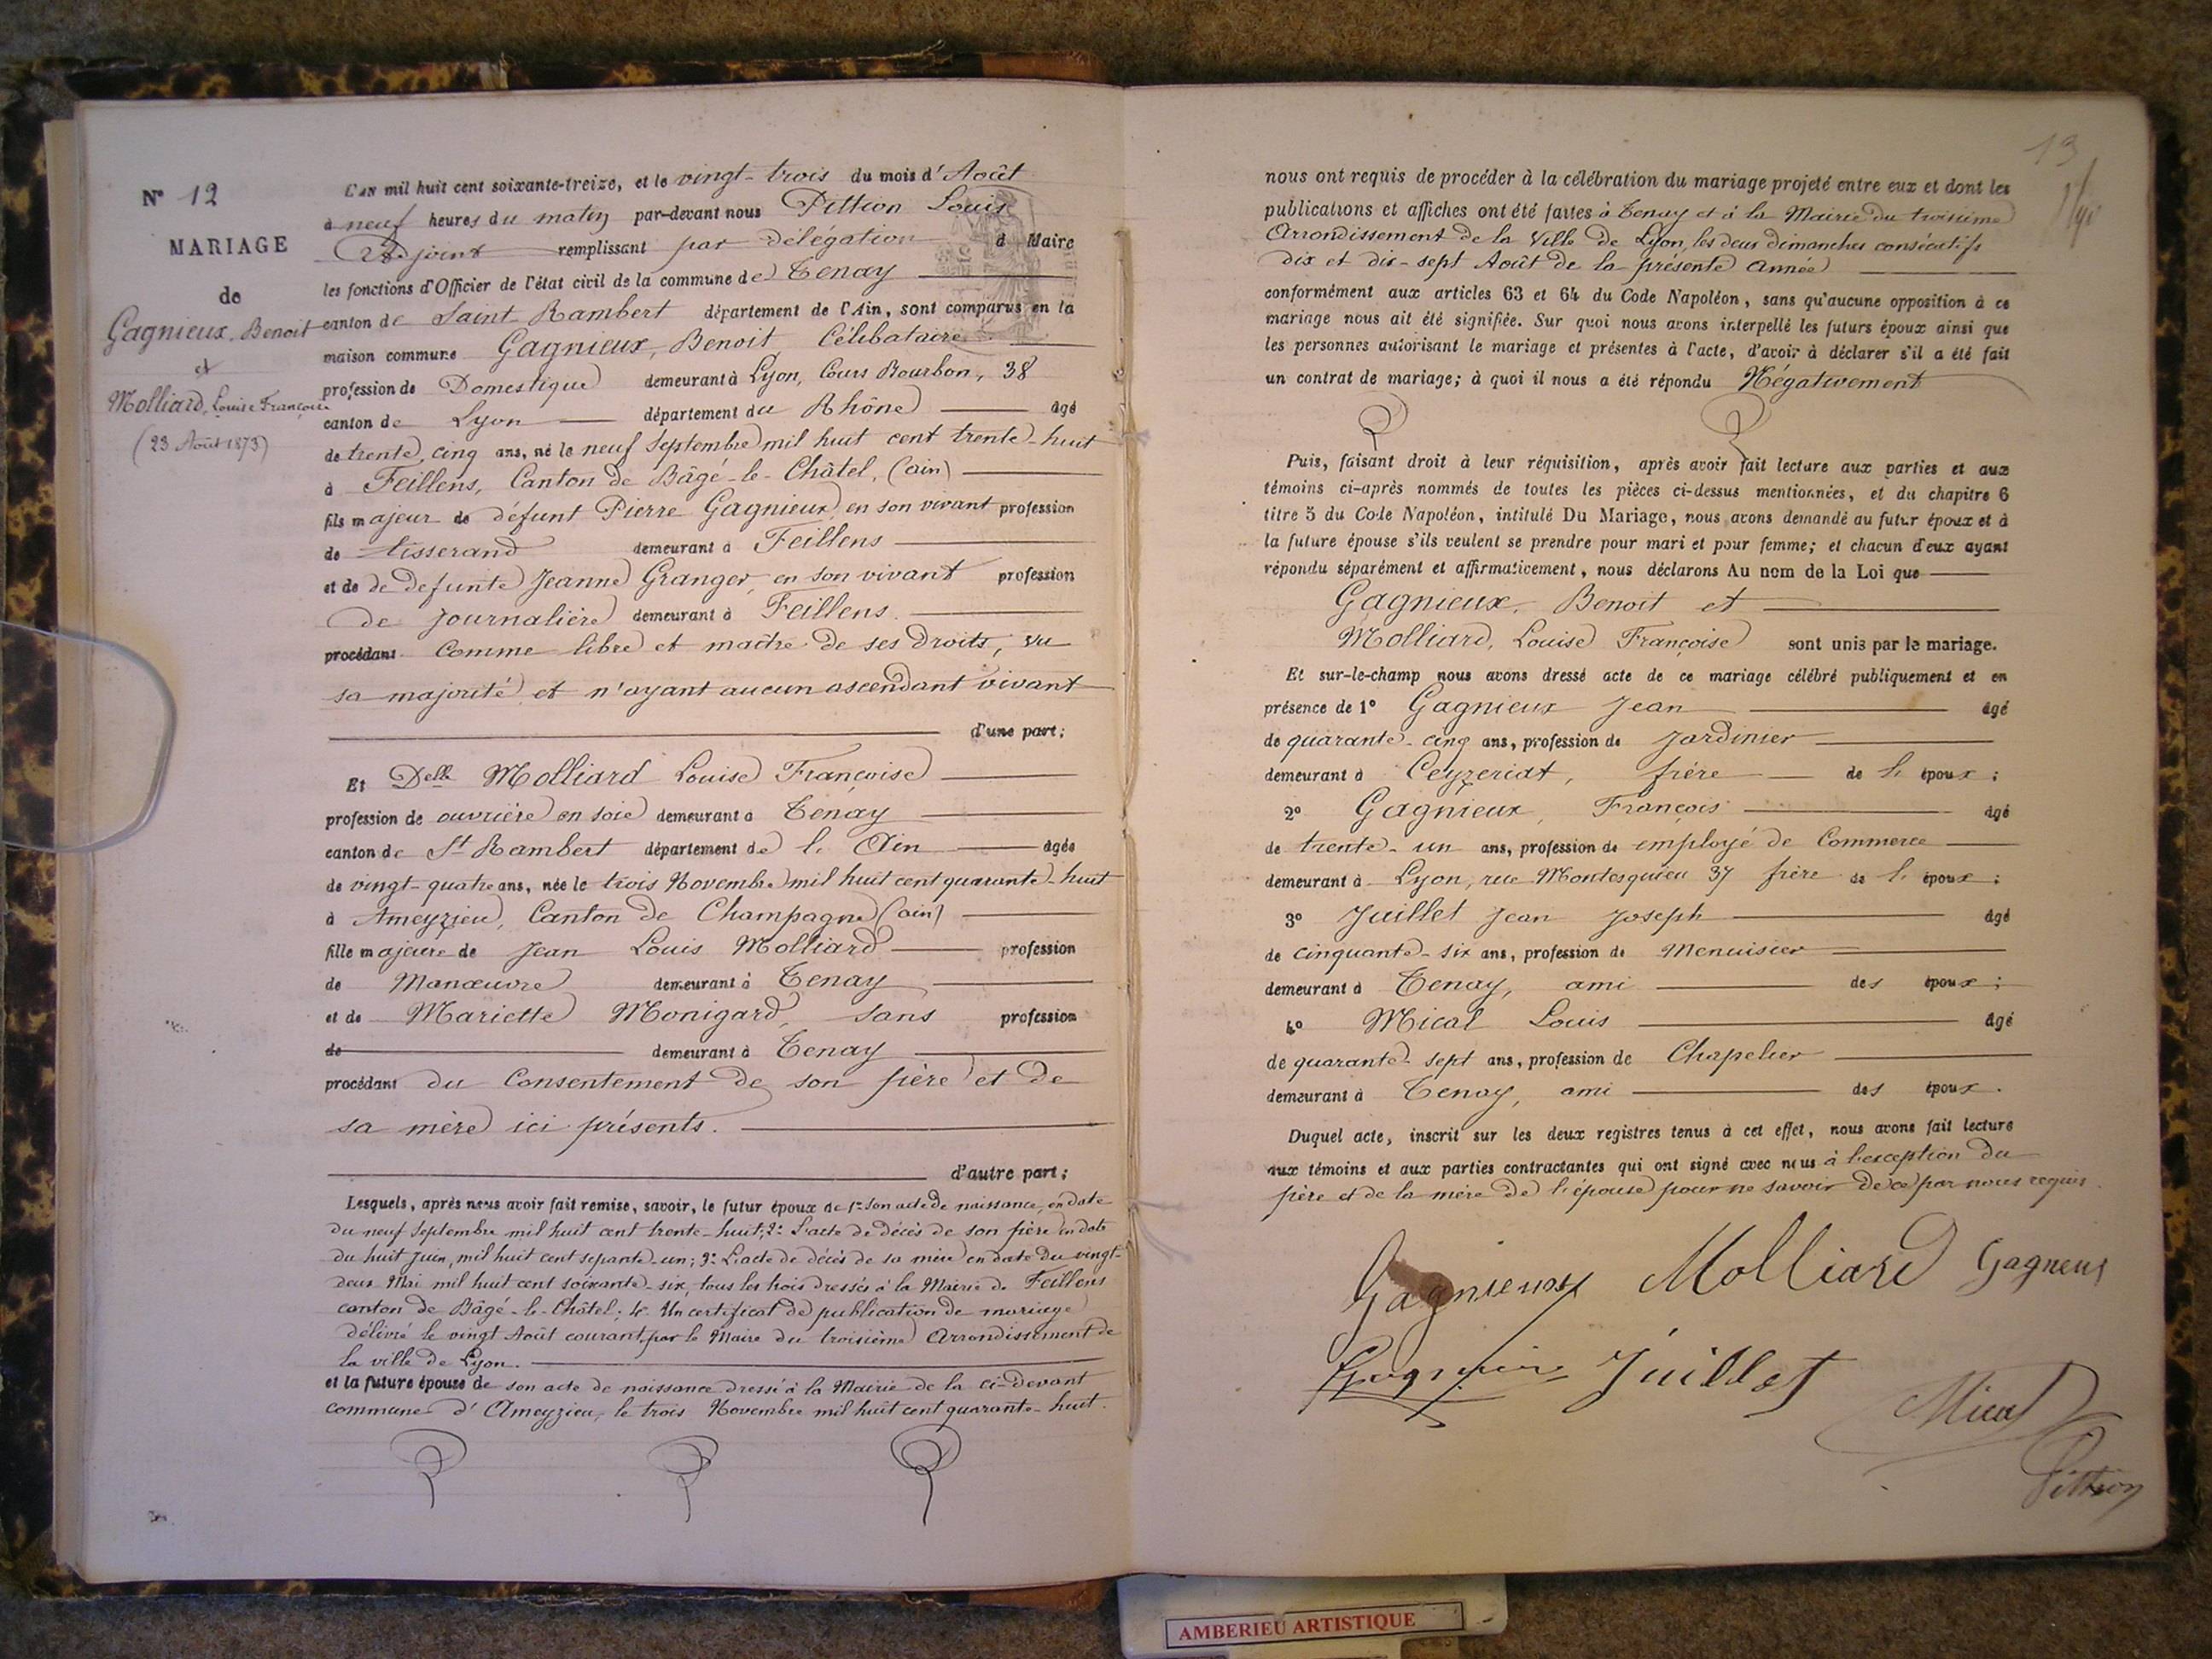 N° 12
MARIAGE
de
Gagnieux, Benoit
et
Molliard, Louise Françoise
(23 Août 1873)
L'AN mil huit cent soixante-treize, et le vingt-trois du mois d'Août
à neuf heures du matin par-devant nous Pittion Louis
Adjoint remplissant par délégation d Maire
les fonctions d'Officier de l'état civil de la commune de Tenay
canton de Saint Rambert département de l'Ain, sont comparus en la
maison commune Gagnieux, Benoit Célibataire
profession de Domestique demeurant à Lyon, Cours Bourbon, 38
canton de Lyon département du Rhône âgé
de trente, cinq ans, né le neuf Septembre mil huit cent trente-huit
à Feillens, Canton de Bâgé-le-Châtel, (ain)
fils majeur de défunt Pierre Gagnieux en son vivant profession
de tisserand demeurant à Feillens
et de de defunte Jeanne Granger, en son vivant profession
de journalière demeurant à Feillens.
procédant Comme libre et maître de ses droits, vu
sa majorité et n'ayant aucun ascendant vivant
d'une part;
Et Delle Molliard Louise Françoise
profession de ouvrière en soie demeurant à Tenay
canton de St Rambert département de l'Ain âgée
de vingt-quatre ans, née le trois Novembre mil huit cent quarante-huit
à Ameyzieu, Canton de Champagne (ain)
fille majeure de Jean Louis Molliard profession
de Manœuvre demeurant à Tenay
et de Mariette Monigard, sans profession
de demeurant à Tenay
procédant du Consentement de son père et de
sa mère ici présents.
d'autre part;
Lesquels, après nous avoir fait remise, savoir, le futur époux de 1° son acte de naissance, en date
du neuf Septembre mil huit cent trente-huit; 2° L'acte de décès de son père en date
du huit Juin, mil huit cent septante-un; 3° L'acte de décès de sa mère en date du vingt-
deux Mai mil huit cent soixante-six, tous les trois dressés à la Mairie de Feillens
canton de Bâgé-le-Châtel; 4° Un certificat de publication de mariage
délivré le vingt Août courant par le Maire du troisième Arrondissement de
la ville de Lyon.
et la future épouse de son acte de naissance dressé à la Mairie de la ci-devant
commune d'Ameyzieu, le trois Novembre mil huit cent quarante-huit.
13
nous ont requis de procéder à la célébration du mariage projeté entre eux et dont les
publications et affiches ont été faites à Tenay et à la Mairie du troisième
Arrondissement de la Ville de Lyon, les deux dimanches consécutifs
dix et dix-sept Août de la présente année
conformément aux articles 63 et 64 du Code Napoléon, sans qu'aucune opposition à ce
mariage nous ait été signifiée. Sur quoi nous avons interpellé les futurs époux ainsi que
les personnes autorisant le mariage et présentes à l'acte, d'avoir à déclarer s'il a été fait
un contrat de mariage; à quoi il nous a été répondu Négativement
Puis, faisant droit à leur réquisition, après avoir fait lecture aux parties et aux
témoins ci-après nommés de toutes les pièces ci-dessus mentionnées, et du chapitre 6
titre 5 du Code Napoléon, intitulé Du Mariage, nous avons demandé au futur époux et à
la future épouse s'ils veulent se prendre pour mari et pour femme; et chacun d'eux ayant
répondu séparément et affirmativement, nous déclarons Au nom de la Loi que
Gagnieux, Benoit et
Molliard, Louise Françoise sont unis par le mariage.
Et sur-le-champ nous avons dressé acte de ce mariage célébré publiquement et en
présence de 1° Gagnieux Jean âgé
de quarante-cinq ans, profession de Jardinier
demeurant à Ceyzeriat, frère de l' époux;
2° Gagnieux, François âgé
de trente-un ans, profession de employé de Commerce
demeurant à Lyon, rue Montesquieu 37 frère de l' époux;
3° Juillet Jean Joseph âgé
de cinquante-six ans, profession de Menuisier
demeurant à Tenay, ami des époux;
4° Mical Louis âgé
de quarante-sept ans, profession de Chapelier
demeurant à Tenay, ami des époux.
Duquel acte, inscrit sur les deux registres tenus à cet effet, nous avons fait lecture
aux témoins et aux parties contractantes qui ont signé avec nous à l'exception du
père et de la mère de l'épouse pour ne savoir de ce par nous requis.
Gagnieux Molliard Gagneux
Juillet
Mical
Pittion
AMBERIEU ARTISTIQUE